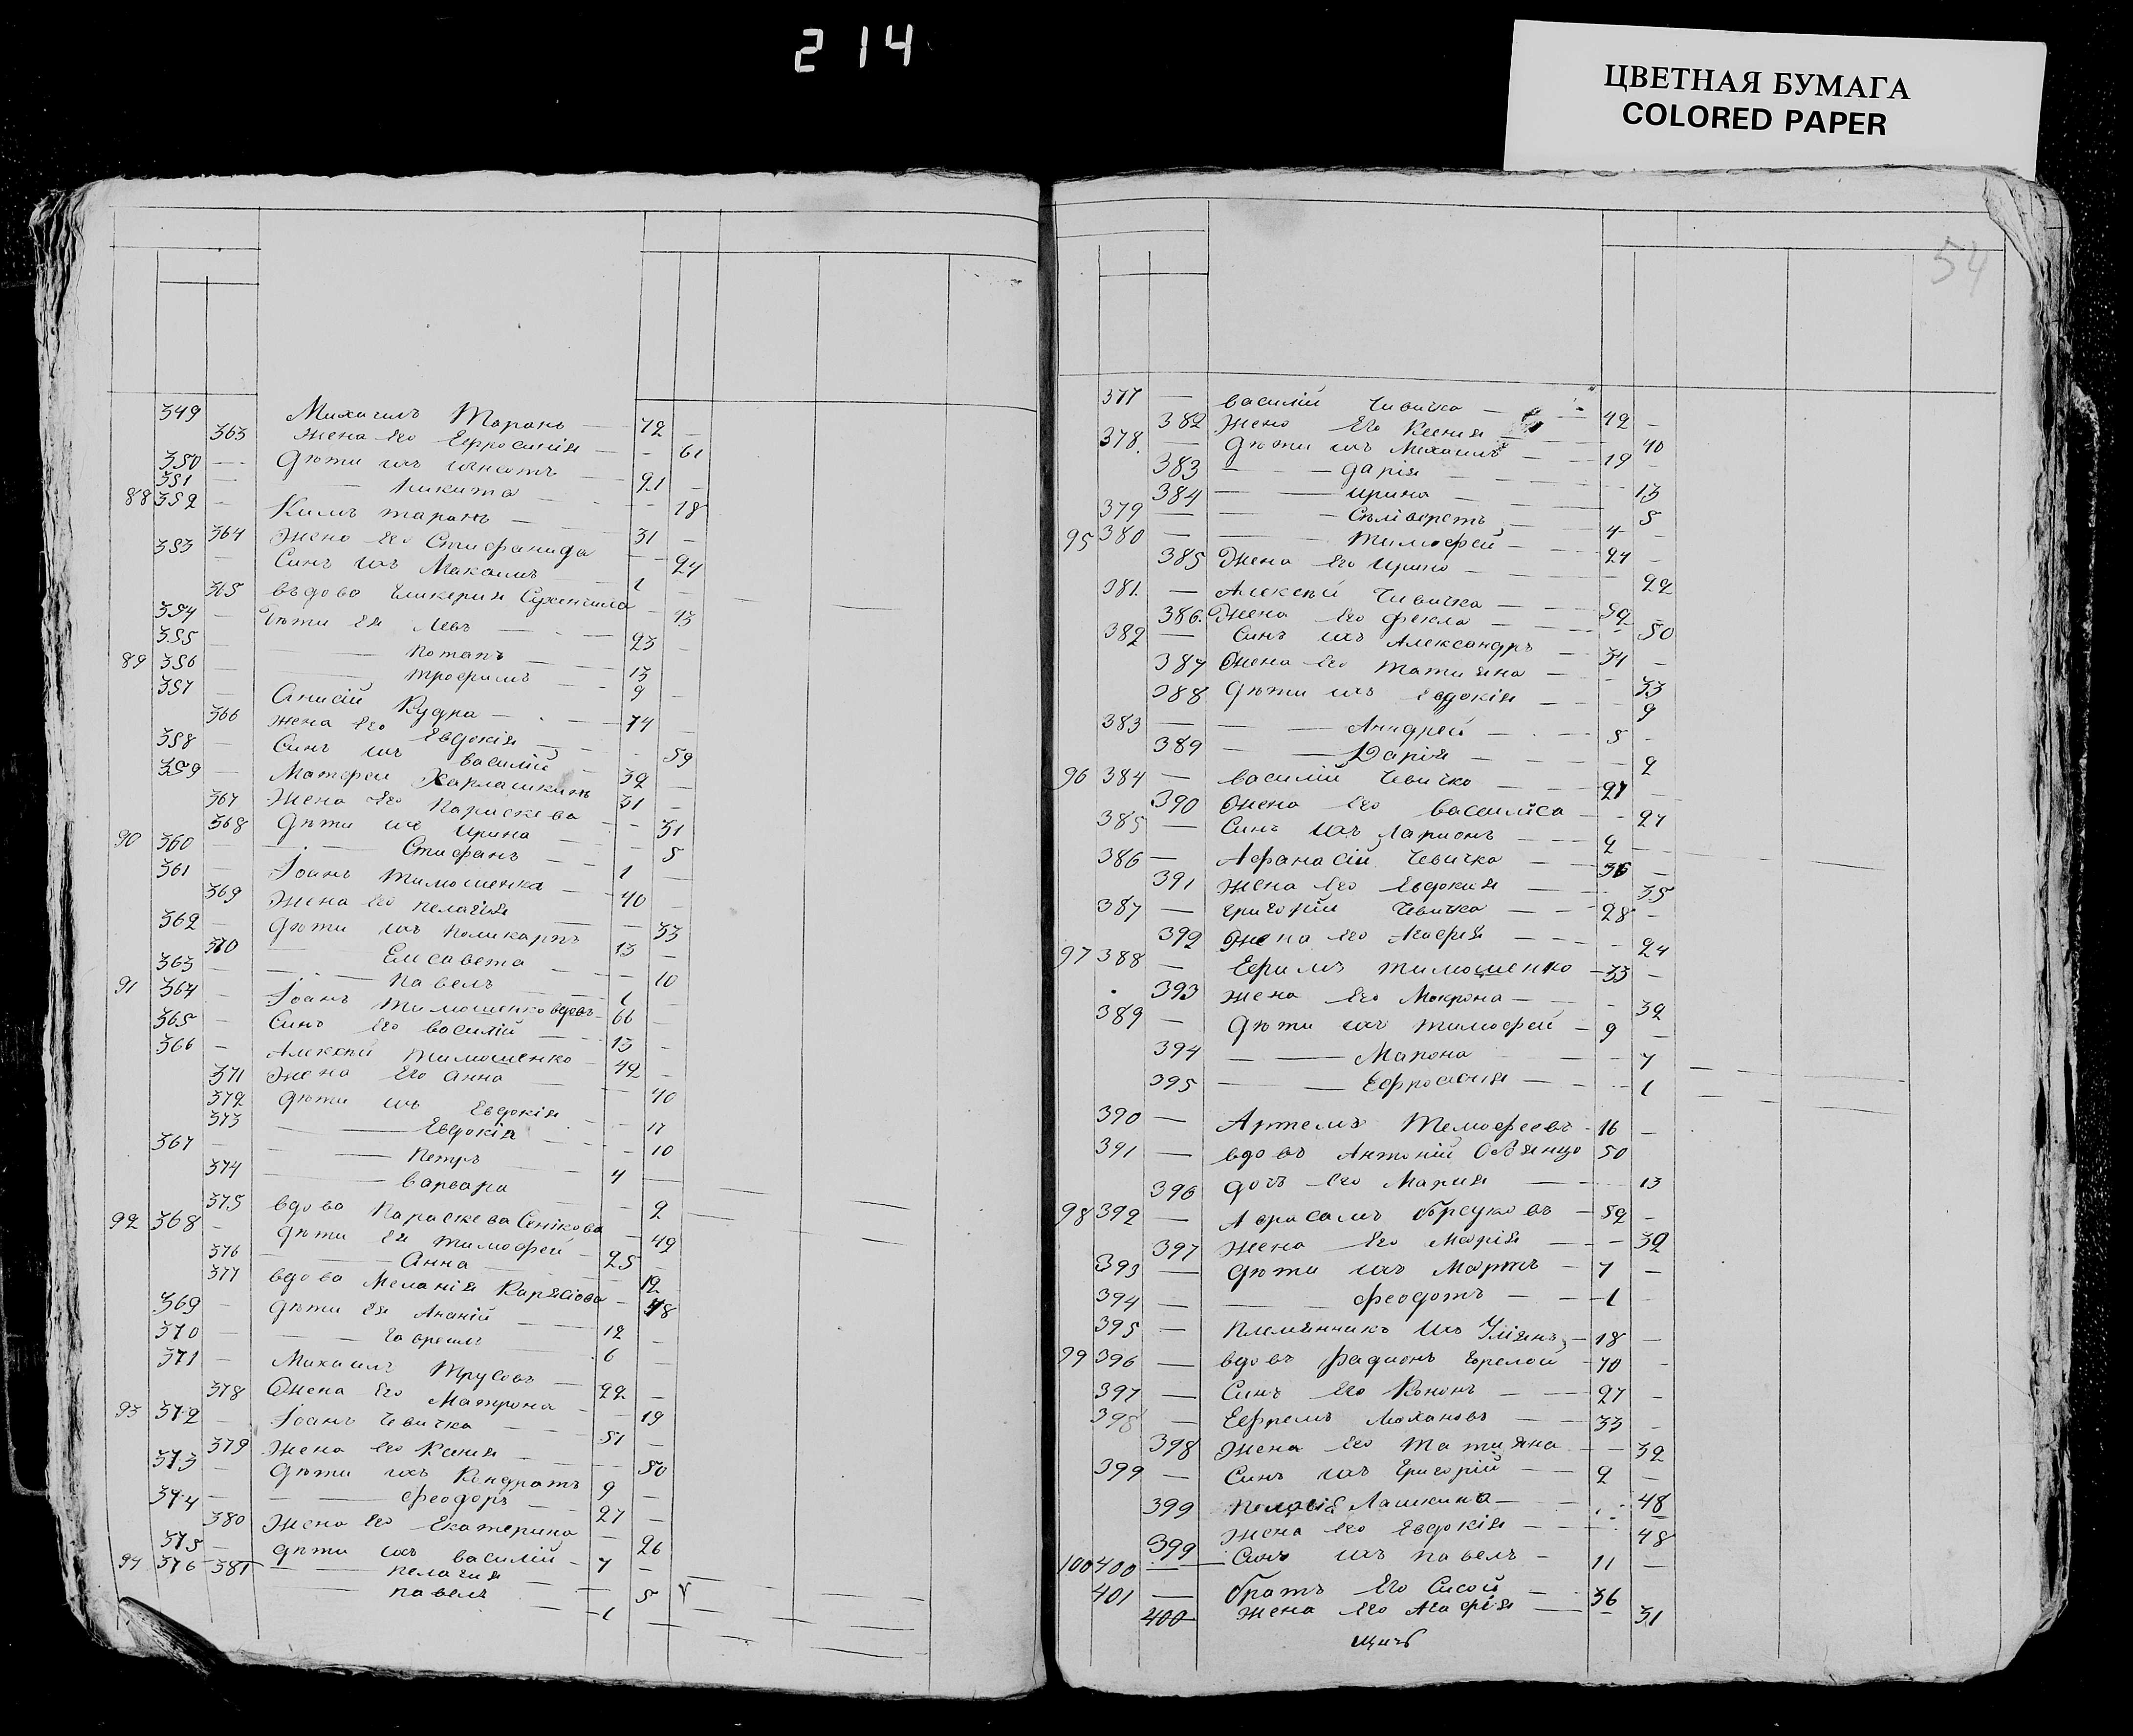 214
ЦВЕТНАЯ БУМАГА
COLORED PAPER
54
349 Михаилъ Таранъ 72
363 Жена его Ефросинія 61
350 Дѣти ихъ 21
351 Никита
88 352 Климъ таранъ 18
364 Жена его Стифанида 31
353 Синъ ихъ Макаимъ 24
365 въдова Гликерия 1
354 Дѣти ея Левъ 43
355 Потапъ 23
89 356 трофимъ 13
357 Онисій Кудра 9
366 жена его Евдокія 74
358 Синъ ихъ василій 59
359 Матфей Карлашкинъ 32
367 Жена его Параскева 31
368 Дѣти ихъ ирина 31
90 360 Стифанъ 5
361 Іоанъ тимошенка 1
369 Жена его пелагія 40
362 Дѣти ихъ поликарпъ 33
370 Елисавета 13
363 Павелъ 10
91 364 Іоанъ тимошенко вдовъ 1 66
365 Синъ его василій 13
366 Алексѣй тимошенко 42
371 Жена его Анна 40
372 Дѣти ихъ Евдокія 17
373 Евдокія 10
367 Петръ
374 варвара 4
375 вдова Параскева Сенкова 2
92 368 Дѣти ея тимофей 42
376 Анна 25
377 вдова Меланія Карасіова 12
369 Дѣти ея Ананій 48
370 Гавреилъ 12
371 Михаилъ Трусовъ 6
378 Жена его Матрона 22
93 372 Іоанъ Чевичка 19
379 Жена его Ксения 51
373 Дѣти ихъ Кондратъ 50
374 феодоръ 9
380 Жена его Екатерина 27
375 Дѣти ихъ василій 26
94 376 381 пелагия 7
павелъ 5
1
377 василій Чивичка 42
382 Жена его Ксения 40
378 Дѣти ихъ Михаилъ 19
383 дарія 13
384 ирина 5
379 Сѣліверстъ 4
95 380 Тимофей 24
385 Жена его Ирина 22
381 Алексѣй Чивичка 52
386 Жена его фекла 50
382 Синъ ихъ Александръ 34
387 Жена его татияна 33
388 Дѣти ихъ Евдокія 9
383 Андрей 5
389 Дарія 2
96 384 василій Чевичко 27
390 Жена его василіса 24
385 Синъ ихъ Ларионъ 2
386 Афанасій Чевичка 36
391 Жена его Евдокия 35
387 григорій Чевичка 28
392 Жена его Агафія 24
97 388 Ефимъ тимошенко 33
393 Жена его Мокрона 32
389 Дѣти ихъ тимофей 9
394 Марона 7
395 Ефросиния 1
390 Артемъ Темофеевъ 16
391 вдовъ Антоній 50
396 дочь его Мария 13
98 392 Аврасамъ борсуковъ 52
397 Жена его Марія 32
393 Дѣти ихъ Мартъ 7
394 феодотъ 1
395 Племянникъ ихъ Улиянъ 18
99 396 вдовъ фадионъ Горелой 70
397 Синъ его Кононъ 27
398 Ефремъ Мохановъ 33
398 Жена его Татияна 32
399 Синъ ихъ Григорій 2
399 Пелагія Лашкина 48
399 Жена его Евдокія 48
100 400 Синъ ихъ павелъ 11
401 братъ его Сисой 36
400 Жена его Агафія 31